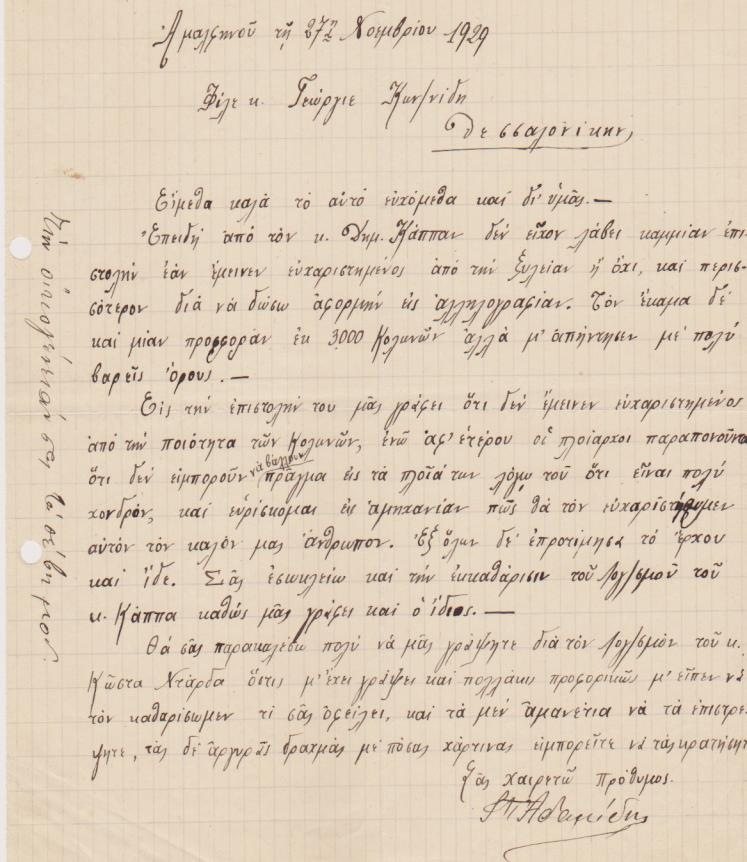 Ἀμαλφηνοῦ τῇ 27ῃ Νοεμβρίου 1929
Φίλε κ. Γεώργιε Κων/νίδη
Θεσσαλονίκην
Εἴμεθα καλά τό αὐτό εὐχόμεθα καί δι' ὑμᾶς. —
Ἐπειδή ἀπό τόν κ. Δημ. Κάππαν δέν εἶχον λάβει καμμίαν ἐπι-
στολήν ἐάν ἔμεινεν εὐχαριστημένος ἀπό τήν ξυλείαν ἤ ὄχι, καί περισ-
σότερον διά νά δώσω ἀφορμήν εἰς ἀλληλογραφίαν. Τόν ἔκαμα δέ
καί μίαν προσφοράν ἐκ 3000 Κολωνῶν ἀλλά μ' ἀπήντησεν μέ πολύ
βαρεῖς ὅρους. —
Εἰς τήν ἐπιστολήν του μᾶς γράφει ὅτι δέν ἔμεινεν εὐχαριστημένος
ἀπό τήν ποιότητα τῶν Κολωνῶν, ἐνῶ ἀφ' ἑτέρου οἱ πλοίαρχοι παραπονοῦντα
ὅτι δέν εἰμποροῦν νά βάλλουν πρᾶγμα εἰς τά πλοῖά των λόγω τοῦ ὅτι εἶναι πολύ
χονδρόν, καί εὑρίσκομαι εἰς ἀμηχανίαν πῶς θά τόν εὐχαριστήσωμεν
αὐτόν τόν καλόν μας ἄνθρωπον. Ἐξ ὅλων δέ ἐπροτίμησα τό ἔρχου
καί ἴδε. Σᾶς ἐσωκλείω καί τήν ἐκκαθάρισιν τοῦ λογ/σμοῦ τοῦ
κ. Κάππα καθώς μᾶς γράφει καί ὁ ἴδιος. —
Θά σᾶς παρακαλέσω πολύ νά μᾶς γράψητε διά τόν λογ/σμόν τοῦ κ.
Κώστα Ντάρδα ὅστις μ' ἔχει γράψει καί πολλάκις προφορικῶς μ' εἶπεν νά
τόν καθαρίσωμεν τί σᾶς ὀφείλει, καί τά μέν ἀμανέτια νά τά ἐπιστρέ-
ψητε, τάς δέ ἀργυρᾶς δραχμάς μέ πόσας χάρτινας εἰμπορεῖτε νά τάς κρατήσητ
Σᾶς χαιρετῶ πρόθυμος.
Τήν οἰκογένειάν σας τά σέβη μου.